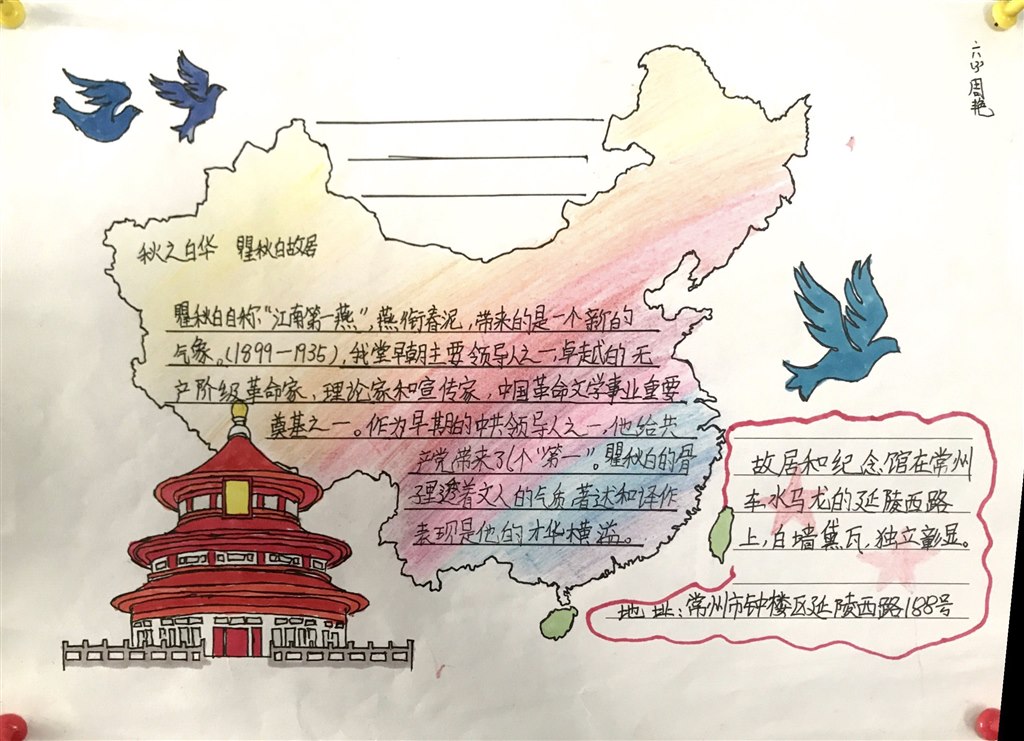 六(3)周艳
秋之白华 瞿秋白故居
瞿秋白自称"江南第一燕",燕衔春泥,带来的是一个新的
气象。(1899—1935),我堂早朝主要领导人之一,卓越的无
产阶级革命家,理论家和宣传家,中国革命文学事业重要
奠基之一。作为早期的中共领导人之一,他给共
产党带来了6个"第一"。瞿秋白的骨
子里透着文人的气质,著述和译作
表现是他的才华横溢。
故居和纪念馆在常州
车水马龙的延陵西路
上,白墙黛瓦,独立彰显。
地址:常州市钟楼区延陵西路188号